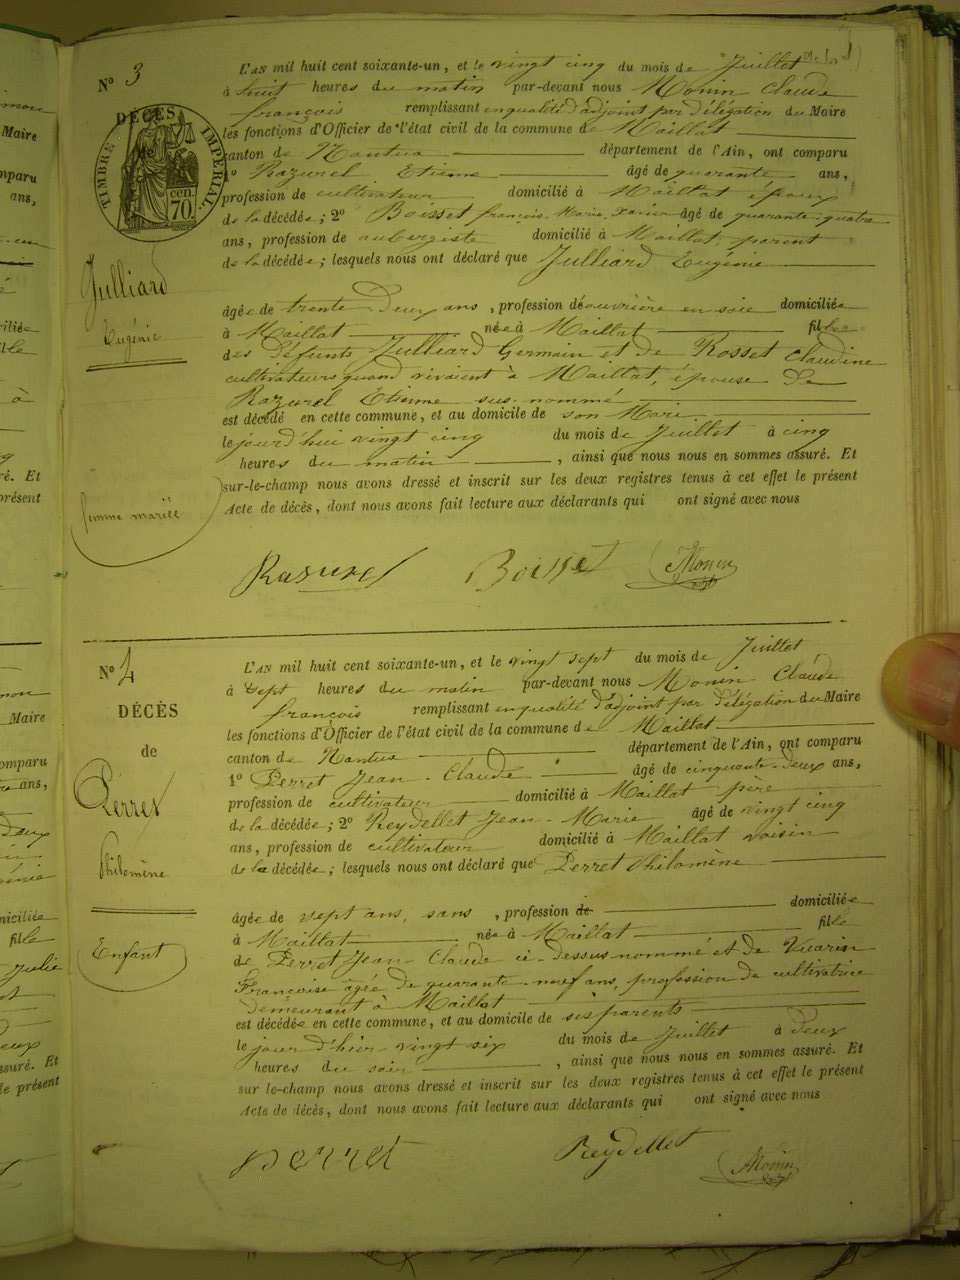 N° 3
L'AN mil huit cent soixante-un, et le vingt cinq du mois de Juillet
à huit heures du matin par-devant nous Monin Claude
françois remplissant en qualité d'adjoint par délégation du Maire
les fonctions d'Officier de l'état civil de la commune de Maillat
canton de Nantua département de l'Ain, ont comparu
1° Razurel Etienne âgé de quarante ans,
profession de cultivateur domicilié à Maillat époux
de la décédée; 2° Boisset françois Marie Xavier âgé de quarante quatre
ans, profession de aubergiste domicilié à Maillat parent
de la décédée; lesquels nous ont déclaré que Julliard Eugénie
TIMBRE IMPÉRIAL
DÉCÈS
70 cen.
Julliard
Eugénie
femme mariée
âgée de trente Deux ans, profession de ouvrière en soie domiciliée
à Maillat née à Maillat fille
des défunts Julliard Germain et de Rosset Claudine
cultivateurs quand vivaient à Maillat, épouse de
Razurel Etienne sus-nommé
est décédé en cette commune, et au domicile de son Mari
le jour d'hui vingt cinq du mois de Juillet à cinq
heures du matin, ainsi que nous nous en sommes assuré. Et
sur-le-champ nous avons dressé et inscrit sur les deux registres tenus à cet effet le présent
Acte de décès, dont nous avons fait lecture aux déclarants qui ont signé avec nous
Razurel Boisset Monin
N° 4
DÉCÈS
de
Perret
Philomène
Enfant
L'AN mil huit cent soixante-un, et le vingt sept du mois de Juillet
à sept heures du matin par-devant nous Monin Claude
françois remplissant en qualité d'adjoint par délégation du Maire
les fonctions d'Officier de l'état civil de la commune de Maillat
canton de Nantua département de l'Ain, ont comparu
1° Perret Jean-Claude âgé de cinquante-deux ans,
profession de cultivateur domicilié à Maillat père
de la décédée; 2° Reydellet Jean-Marie âgé de vingt cinq
ans, profession de cultivateur domicilié à Maillat voisin
de la décédée; lesquels nous ont déclaré que Perret Philomène
âgée de sept ans, sans, profession de domiciliée
à Maillat née à Maillat fille
de Perret Jean-Claude ci-dessus nommé et de
Françoise âgée de quarante-neuf ans, profession de cultivatrice
demeurant à Maillat
est décédée en cette commune, et au domicile de ses parents
le jour d'hier vingt six du mois de Juillet à deux
heures du soir, ainsi que nous nous en sommes assuré. Et
sur-le-champ nous avons dressé et inscrit sur les deux registres tenus à cet effet le présent
Acte de décès, dont nous avons fait lecture aux déclarants qui ont signé avec nous
perret Reydellet Monin